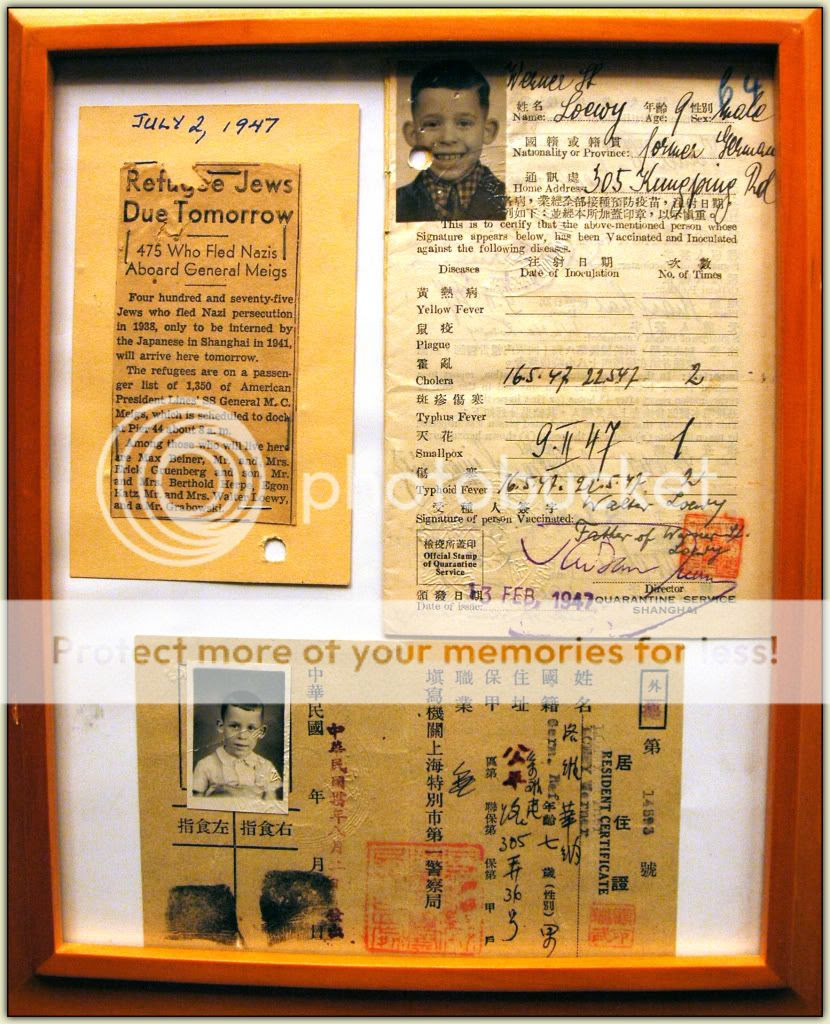 JULY 2, 1947
Refugee Jews
Due Tomorrow
475 Who Fled Nazis
Aboard General Meigs
Four hundred and seventy-five
Jews who fled Nazi persecution
in 1938, only to be interned by
the Japanese in Shanghai in 1941,
will arrive here tomorrow.
The refugees are on a passen-
ger list of 1,350 of American
President Lines' SS General M. C.
Meigs, which is scheduled to dock
at Pier 44 about 8 a. m.
Among those who will live here
are Max Beiner, Mr. and Mrs.
Erich Gruenberg and son, Mr.
and Mrs. Berthold Herps, Egon
Katz, Mr. and Mrs. Walter Loewy,
and a Mr. Grabowski.
64
Werner
姓名 Loewy 年齡 9 性別 male
Name: Age: Sex:
國籍或籍貫 former German
Nationality or Province:
通訊處 305 Kungping Rd
Home Address
病,業經全部接種預防疫苗,注射日期,
列如下:並經本所加蓋印章,以昭慎重。
This is to certify that the above-mentioned person whose
Signature appears below, has been Vaccinated and Inoculated
against the following diseases.
注射日期 次數
Diseases Date of Inoculation No. of Times
黃熱病
Yellow Fever
鼠疫
Plague
霍亂
Cholera 16.5.47 22.5.47 2
斑疹傷寒
Typhus Fever
天花
Smallpox 9.II 47 1
傷寒
Typhoid Fever 16.5.47. 22.5.47 2
受種人簽字 Walter Loewy
Signature of person Vaccinated:
Father of Werner
Loewy
檢疫所蓋印
Official Stamp
of Quarantine
Service
Director
頒發日期 13 FEB, 1947 QUARANTINE SERVICE
Date of issue: SHANGHAI
外
第 14593 號
居住證
RESIDENT CERTIFICATE
Loewy Werner
姓名
國籍 Germ. Ref 年齡 七 歲(性別) 男
住址 公平路 305 弄 36 号
保甲 區第 聯保第 保第 甲 戶
職業
填寫機關上海特別市第一警察局
中華民國 年 月 日
指食左 指食右
photobucket
Protect more of your memories for less!